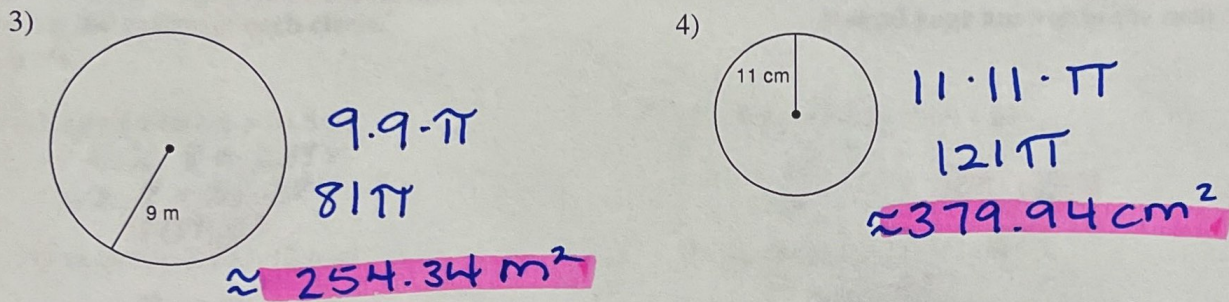 3)
9 m
9.9-π
81π
≈ 254.34 m²
4)
11 cm
11·11·π
121π
≈379.94 cm²